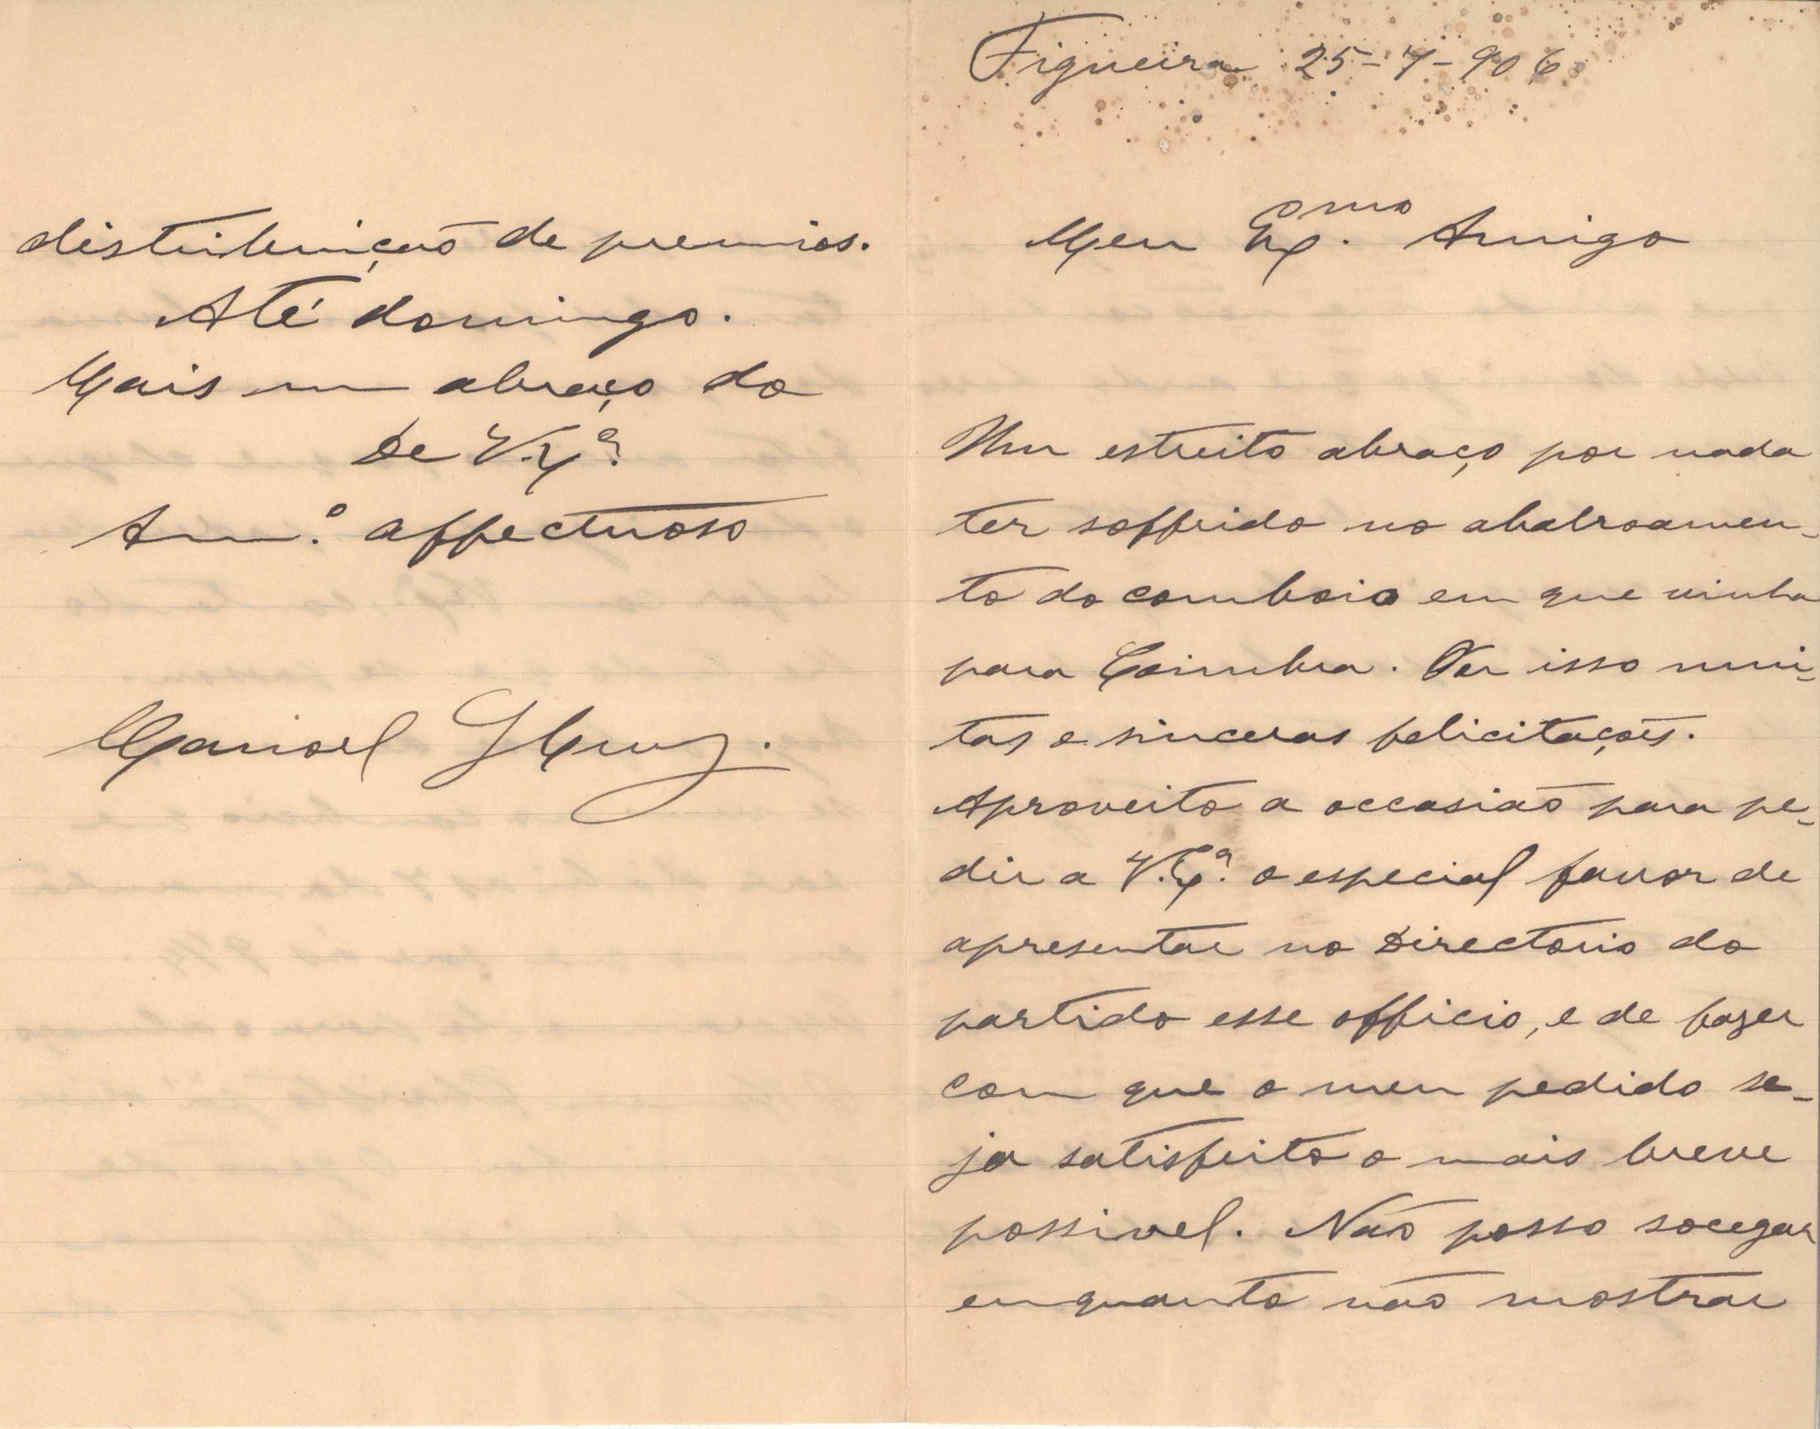 Figueira 25-7-906
Meu Ex.mo Amigo
Um estreito abraço por nada
ter soffrido no abalroamen-
to do comboio em que vinha
para Coimbra. Por isso mui-
tas e sinceras felicitações.
Aproveito a occasião para pe-
dir a V. Ex.ª o especial favor de
apresentar no Directorio do
partido esse officio, e de fazer
com que o meu pedido se-
ja satisfeito o mais breve
possivel. Não posso socegar
enquanto não mostrar
distribuição de premios.
Até domingo.
Mais um abraço do
De V. Ex.ª
Am.º affectuoso
Manoel Cruz.